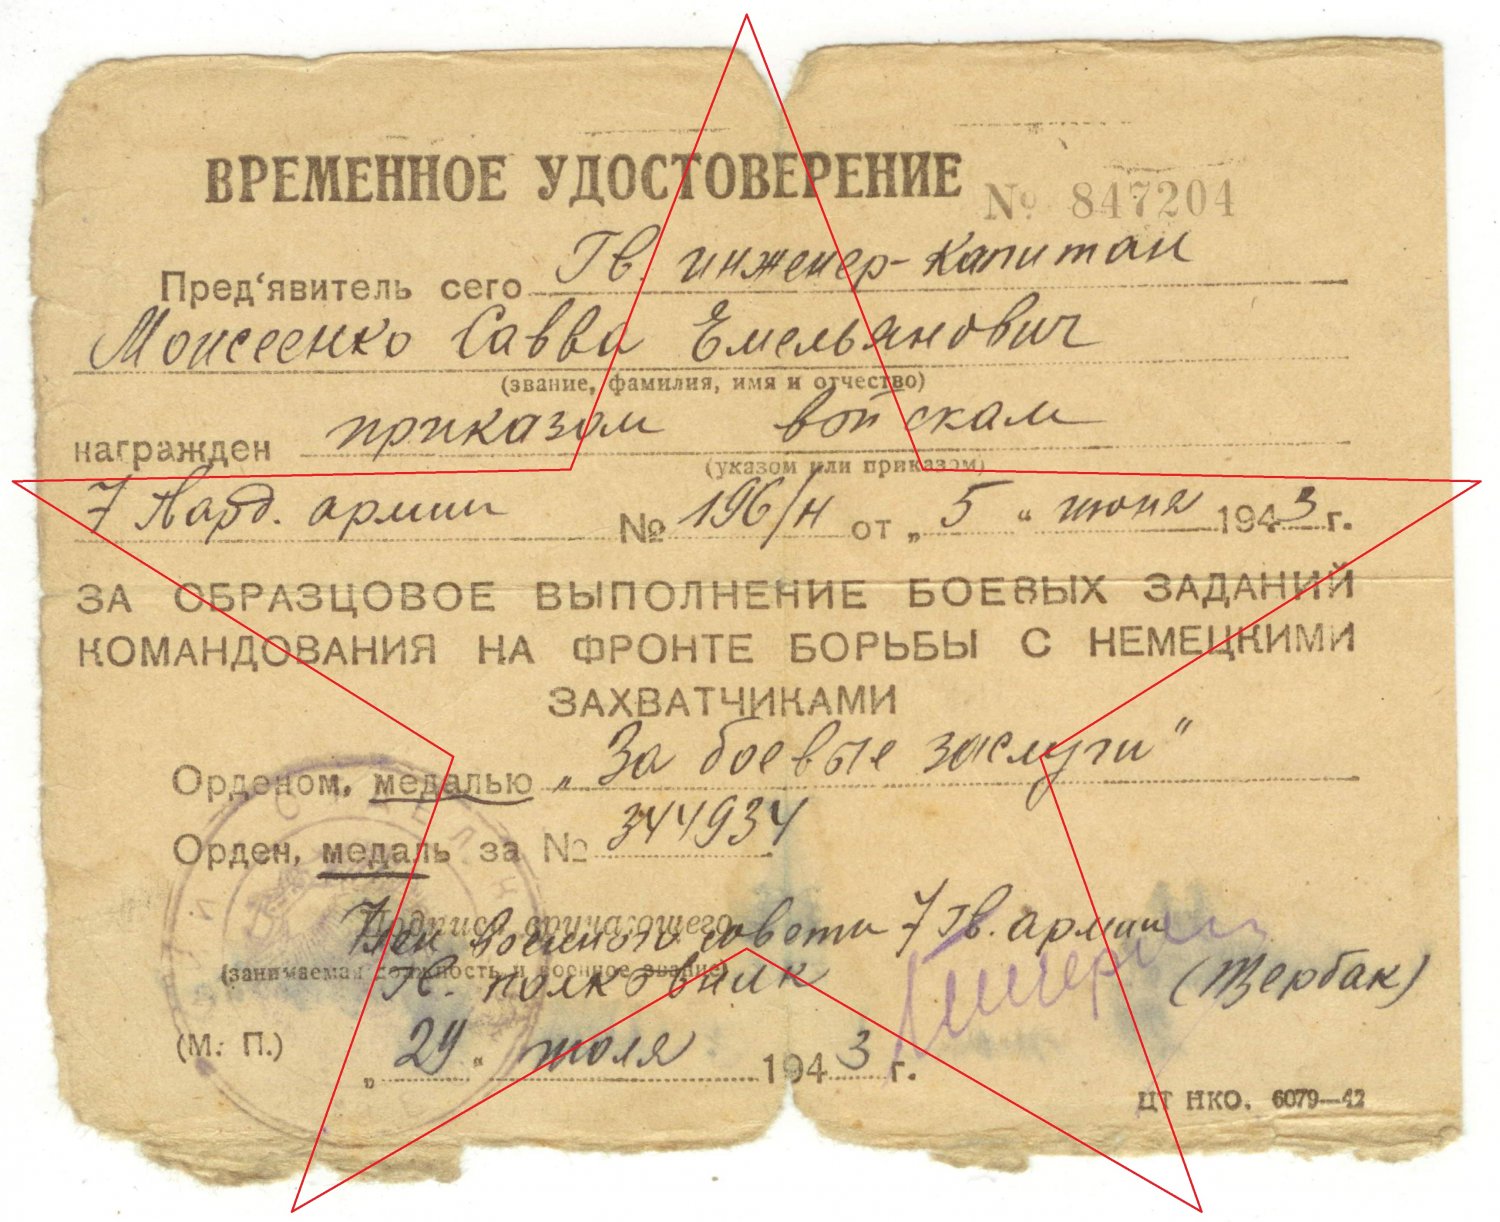 ВРЕМЕННОЕ УДОСТОВЕРЕНИЕ № 847204
Пред'явитель сего Гв. инженер-капитан
Моисеенко Савва Емельянович
(звание, фамилия, имя и отчество)
награжден приказом войскам
(указом или приказом)
7 Гвард. армии № 196/н от „5“ июня 1943 г.
ЗА ОБРАЗЦОВОЕ ВЫПОЛНЕНИЕ БОЕВЫХ ЗАДАНИЙ
КОМАНДОВАНИЯ НА ФРОНТЕ БОРЬБЫ С НЕМЕЦКИМИ
ЗАХВАТЧИКАМИ
Орденом, медалью „За боевые заслуги“
Орден, медаль за № 344934
Подпись вручающего
Член военного совета 7 гв. армии
(занимаемая должность и военное звание)
П. полковник (Щербак)
(М. П.) „29“ июля 1943 г.
ЦТ НКО. 6079—42